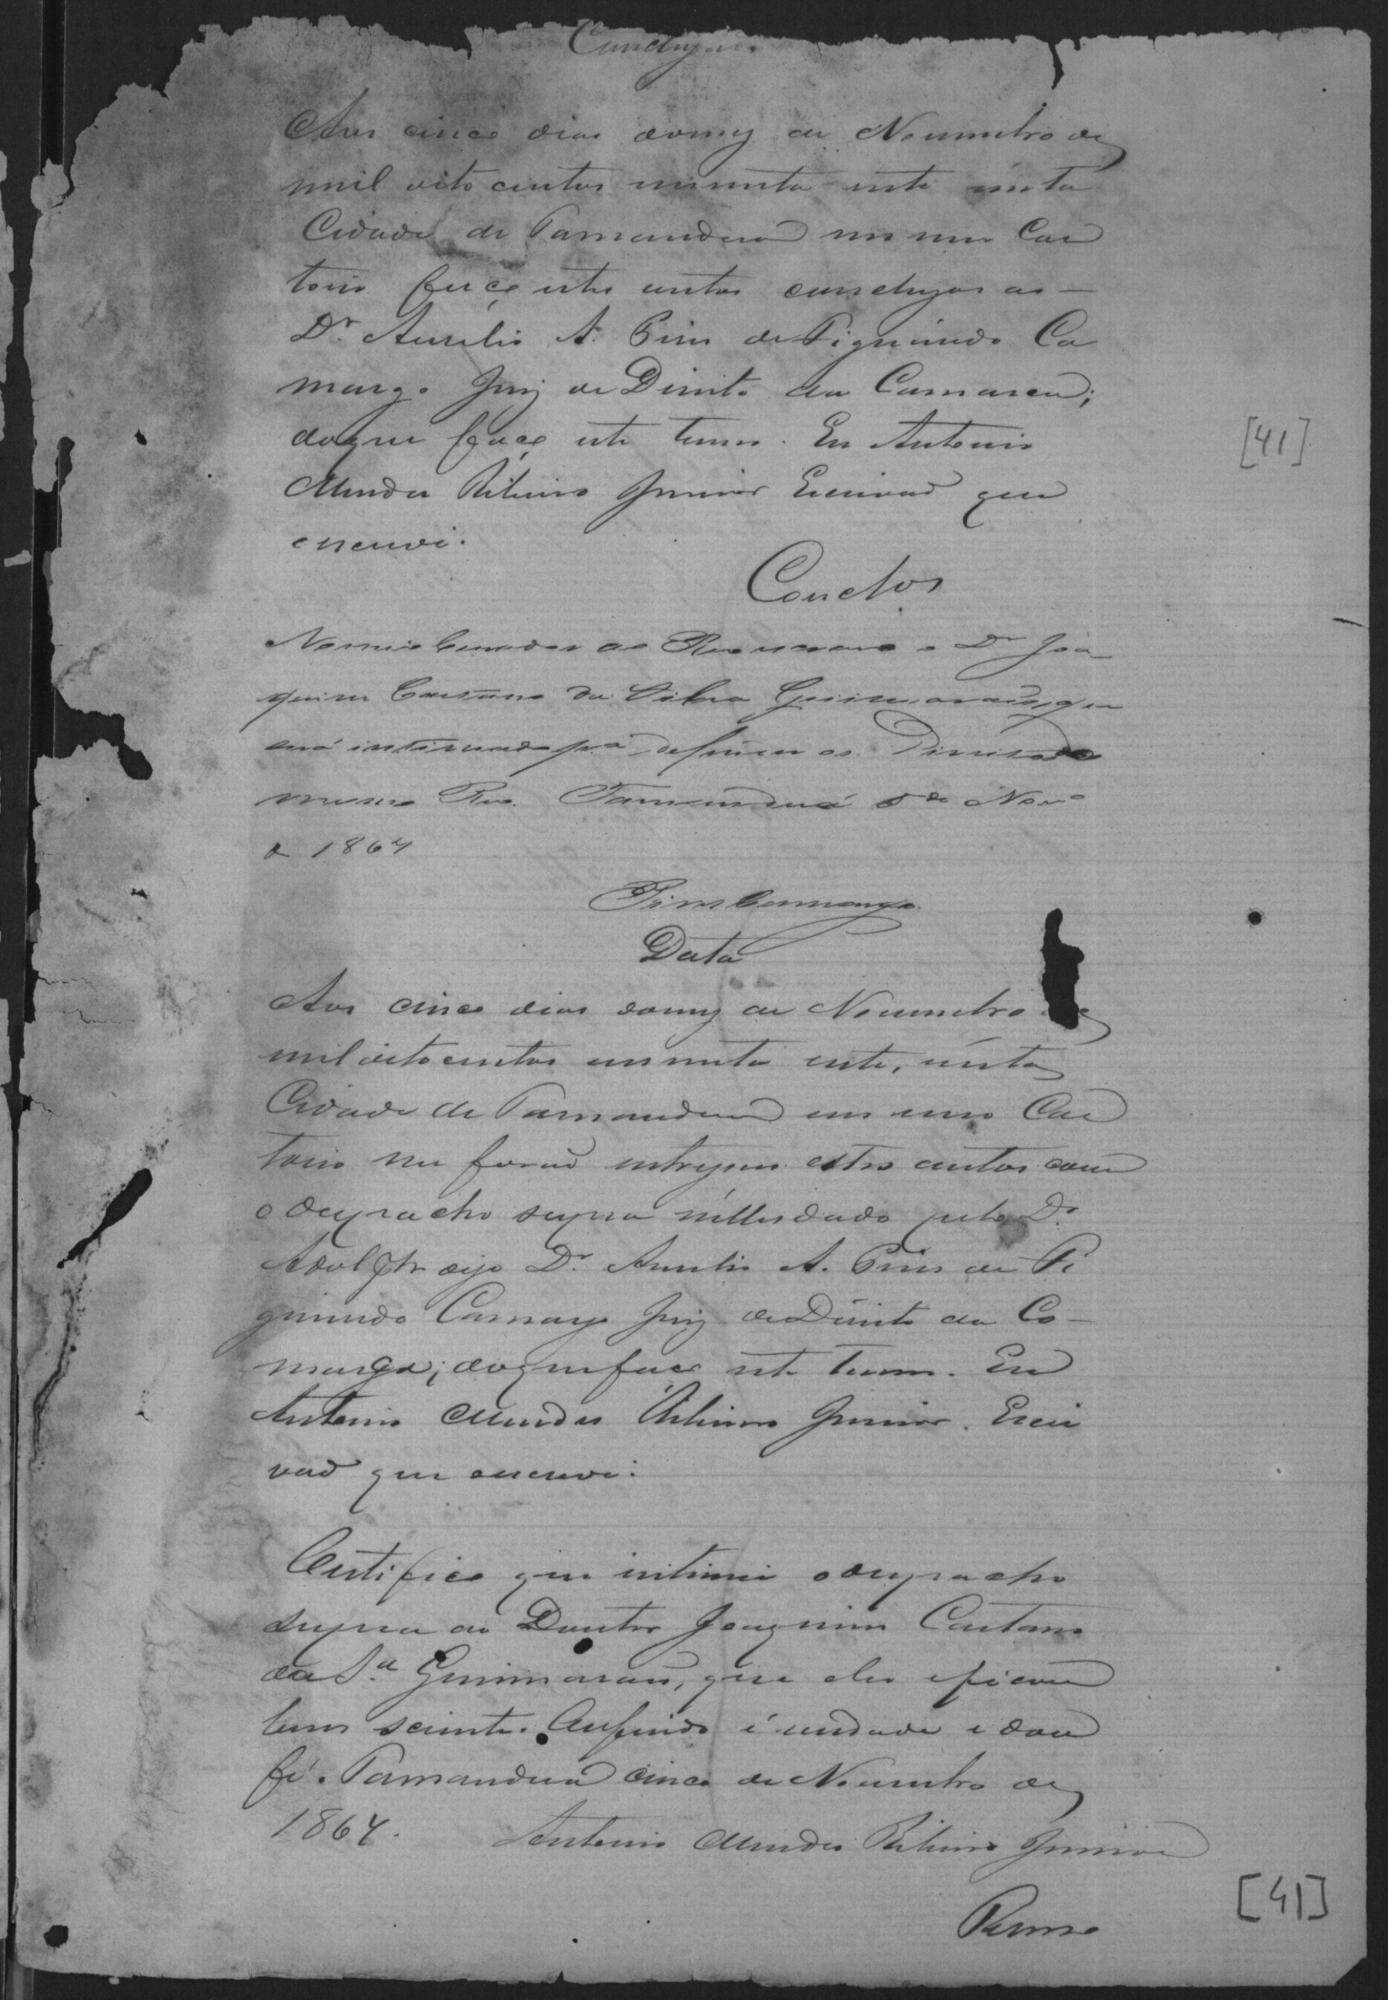 Concluzão
Aos cinco dias domez de Novembro de
mil oito centos e sessenta e sete nesta
Cidade de Tamanduá em meu Car
torio faço estes autos concluzos ao
Dr Aurelio A. Pires de Figueiredo Ca
margo Juiz de Direito da Comarca;
doque faço este termo. Eu Antonio
Mendes Ribeiro Junior Escrivaõ que
escrevi.
Conclos
Nomeio Curador ao Reo o Dr Joa
quim Caetano da Silva Guimarães, que
será intimado pa defender os Direitos do
mesmo Reo. Tamanduá 5 de Novo
de 1867
Pires Camargo
Data
Aos cinco dias domez de Novembro de
mil oito centos e sessenta e sete, nesta
Cidade de Tamanduá em meu Car
torio me foraõ entregues estes autos com
o despacho supra nelles dado pelo Dr
Adolfo digo Dr Aurelio A. Pires de Fi
gueiredo Camargo Juiz de Direito da Co
marca; doque faço este termo. Eu
Antonio Mendes Ribeiro Junior. Escri
vaõ que escrevi.
Certifico que intimei o despacho
supra ao Doutor Joaquim Caetano
da Sa Guimarães, que delle ficou
bem sciente. O referido é verdade e dou
fé. Tamanduá cinco de Novembro de
1867. Antonio Mendes Ribeiro Junior
[41]
[41]